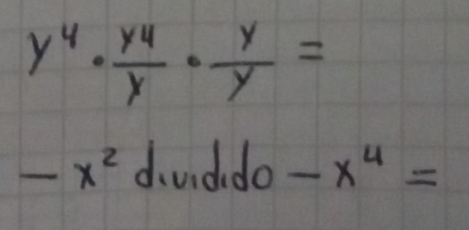 y⁴ · y4/y · y/y =
- x² dividido - x⁴ =